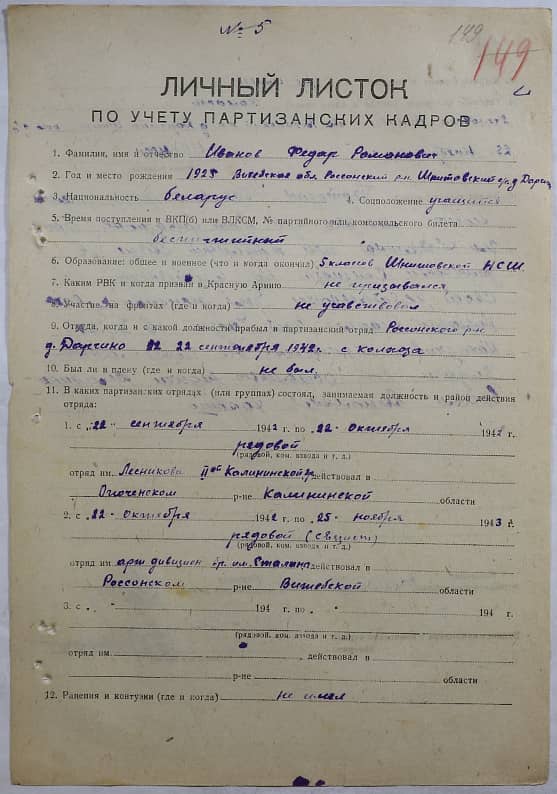 № 5
149
149
ЛИЧНЫЙ ЛИСТОК
ПО УЧЕТУ ПАРТИЗАНСКИХ КАДРОВ
1. Фамилия, имя и отчество Иванов Федар Романович
2. Год и место рождения 1925 Витебская обл. Россонский р-н
3. Национальность беларус 4. Соцположение учащийся
5. Время поступления в ВКП(б) или ВЛКСМ, № партийного или комсомольского билета
беспартийный
6. Образование: общее и военное (что и когда окончил) 5 класов НСШ
7. Каким РВК и когда призван в Красную Армию не призывался
8. Участие на фронтах (где и когда) не учавствовал
9. Откуда, когда и с какой должности прибыл в партизанский отряд Россонского р-н
д. Дарчино 22 сентября 1942 г. с колхоза
10. Был ли в плену (где и когда) не был
11. В каких партизанских отрядах (или группах) состоял, занимаемая должность и район действия
отряда:
1. с „22" сентября 1942 г. по „22" Октября 1942 г.
рядовой
(рядовой, ком. взвода и т. д.)
отряд им. Лесникова Калининской действовал в
р-не Калининской области
2. с „22" Октября 1942 г. по „25" ноября 1943 г.
рядовой (связист)
(рядовой, ком. взвода и т. д.)
отряд им арт дивизион бр. им. Сталина действовал в
Россонском р-не Витебской области
3. с „ 194 г. по „ " 194 г.
(рядовой, ком. взвода и т. д.)
отряд им. , действовал в
р-не области
12. Ранения и контузии (где и когда) не имел